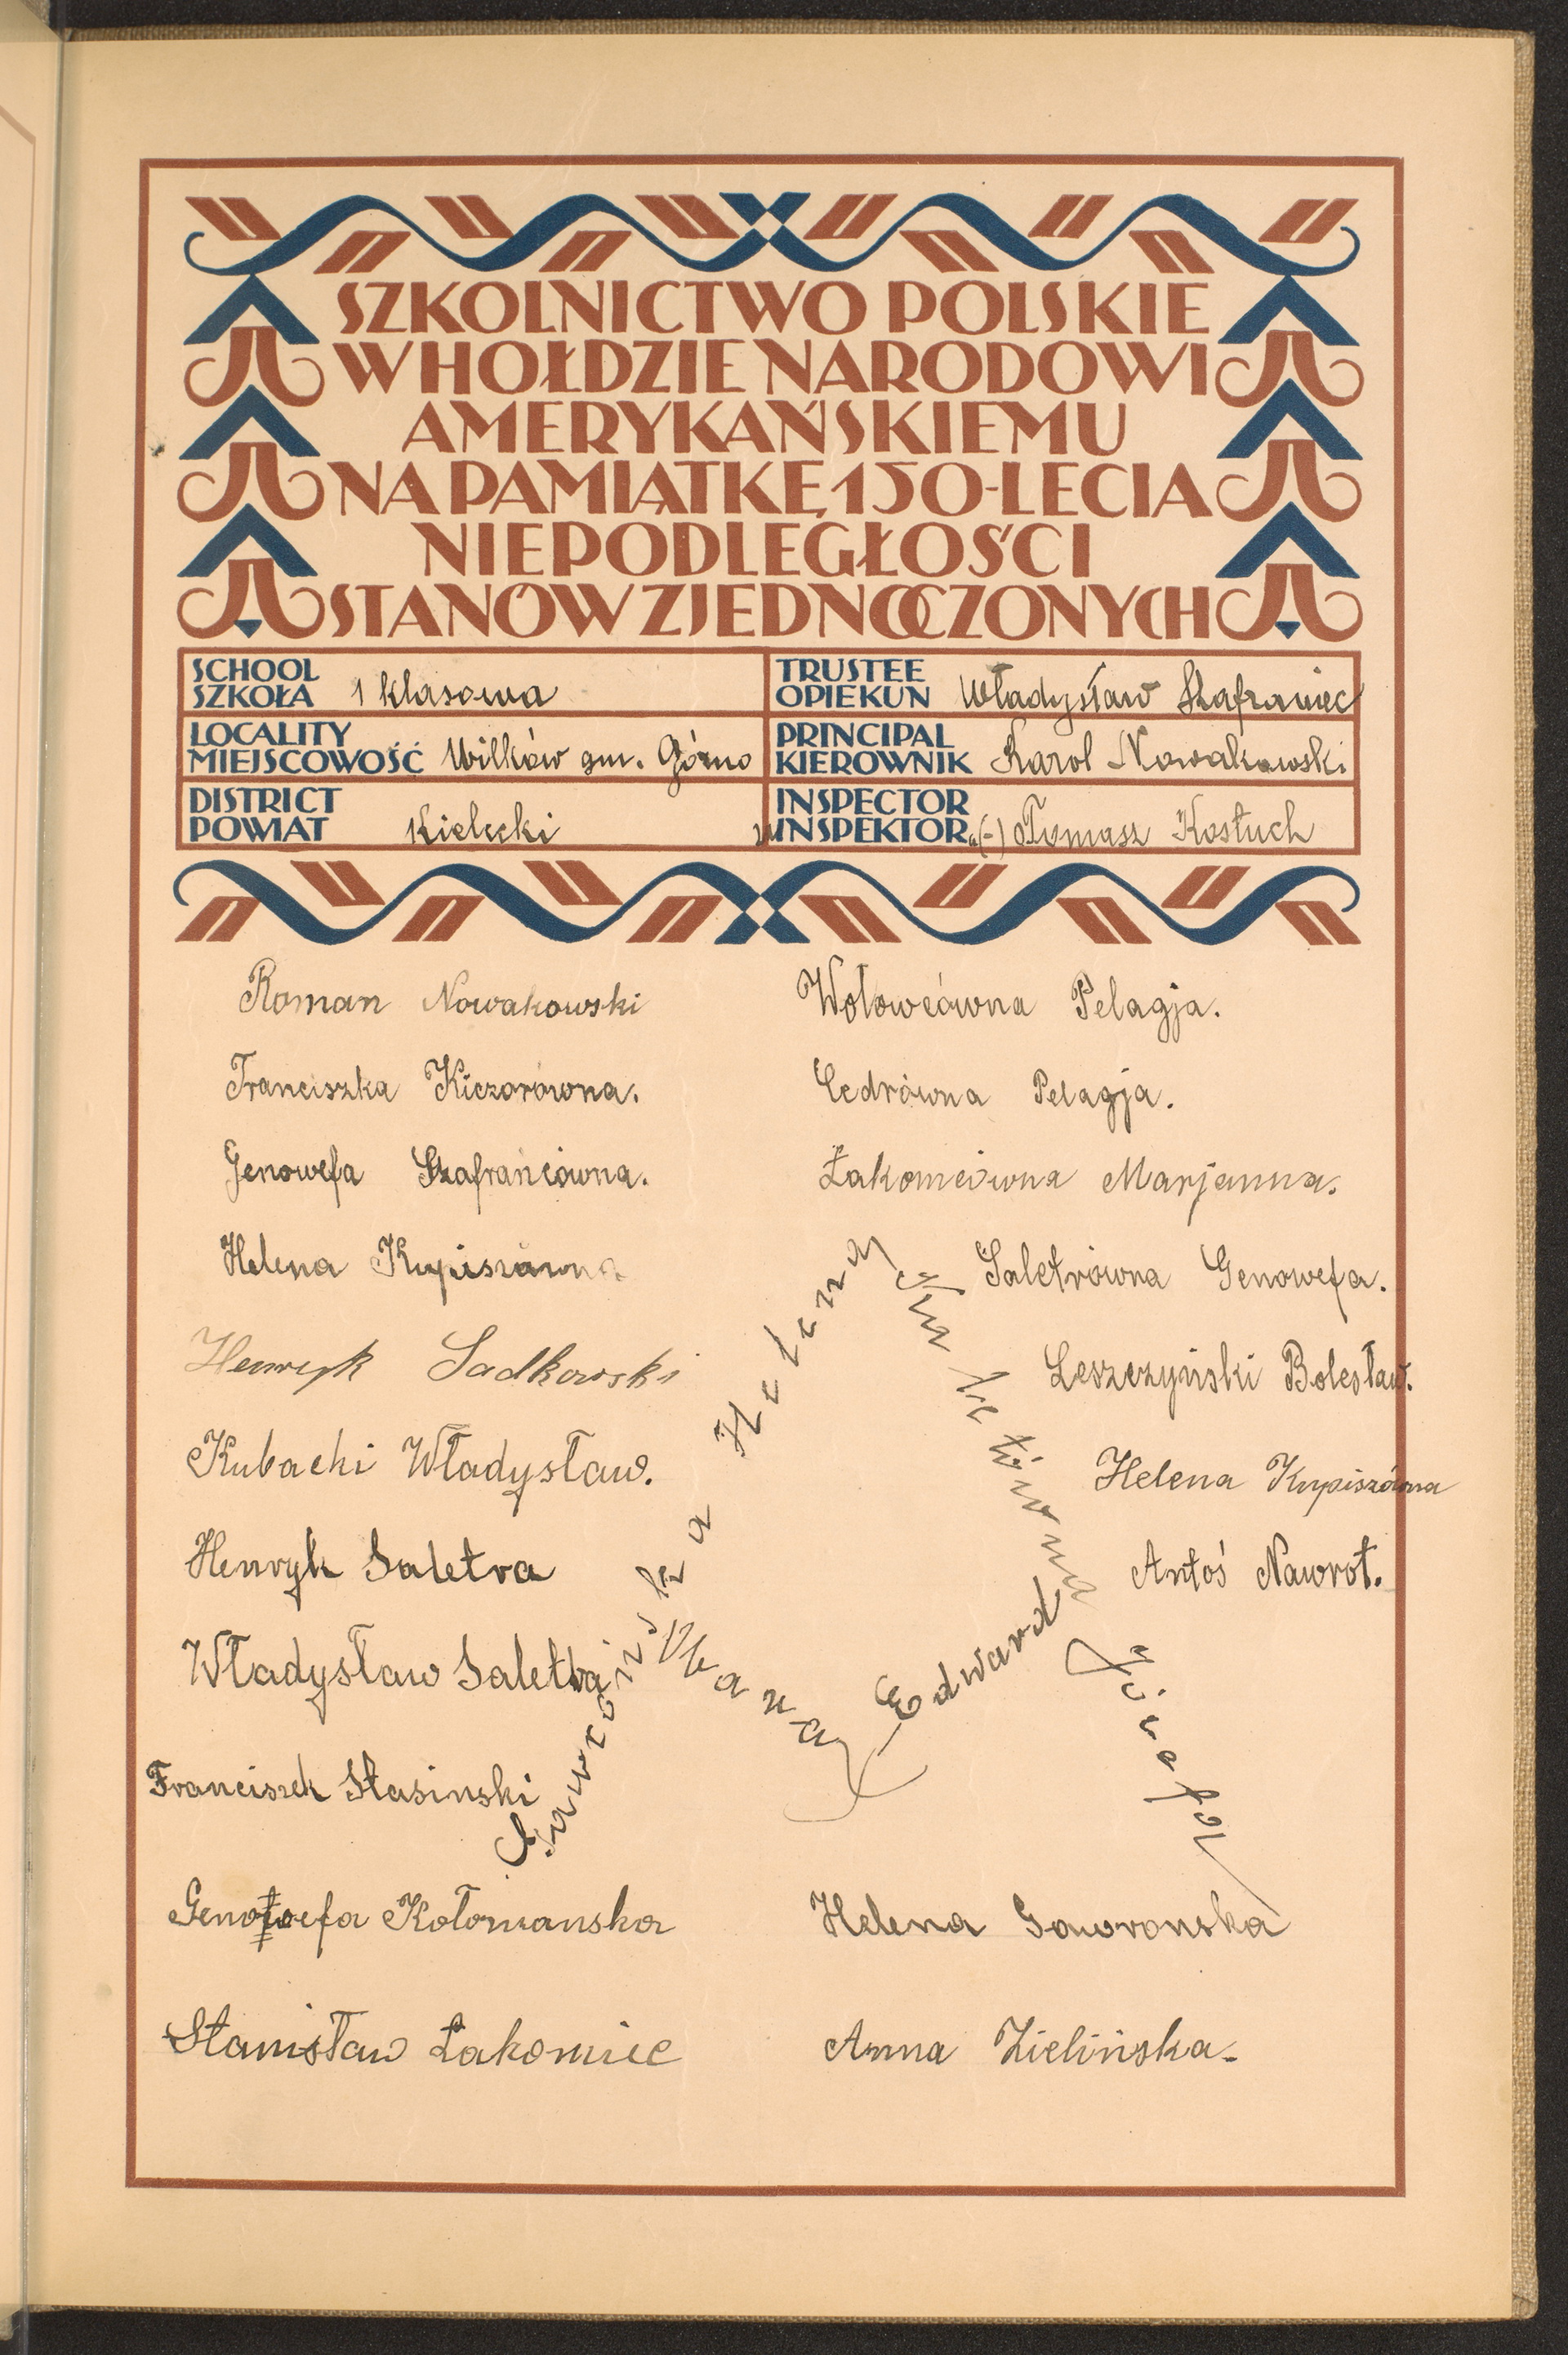 SZKOLNICTWO POLSKIE
W HOŁDZIE NARODOWI
AMERYKAŃSKIEMU
NA PAMIĄTKĘ 150-LECIA
NIEPODLEGŁOŚCI
STANÓW ZJEDNOCZONYCH
SCHOOL
SZKOŁA 1 klasowa
TRUSTEE
OPIEKUN Władysław Szafraniec
LOCALITY
MIEJSCOWOŚĆ Wilków gm. Górno
PRINCIPAL
KIEROWNIK Karol Nowakowski
DISTRICT
POWIAT Kielecki
INSPECTOR
INSPEKTOR (-) Tomasz Kostuch
Roman Nowakowski
Franciszka Kiczorówna.
Genowefa Szafrańcówna.
Helena Kupiszówna
Henryk Sadkowski
Kubacki Władysław.
Henryk Saletra
Władysław Saletra
Franciszek Stasinski
Genowefa Kołomanska
Stanisław Łakomiec
Wołowcówna Pelagja.
Cedrówna Pelagja.
Łakomcówna Marjanna.
Saletrówna Genowefa.
Leszczyński Bolesław.
Helena Kupiszówna
Antoś Nawrot.
Gawronska Helena
Edward
Józefa
Helena Gawronska
Anna Zielińska